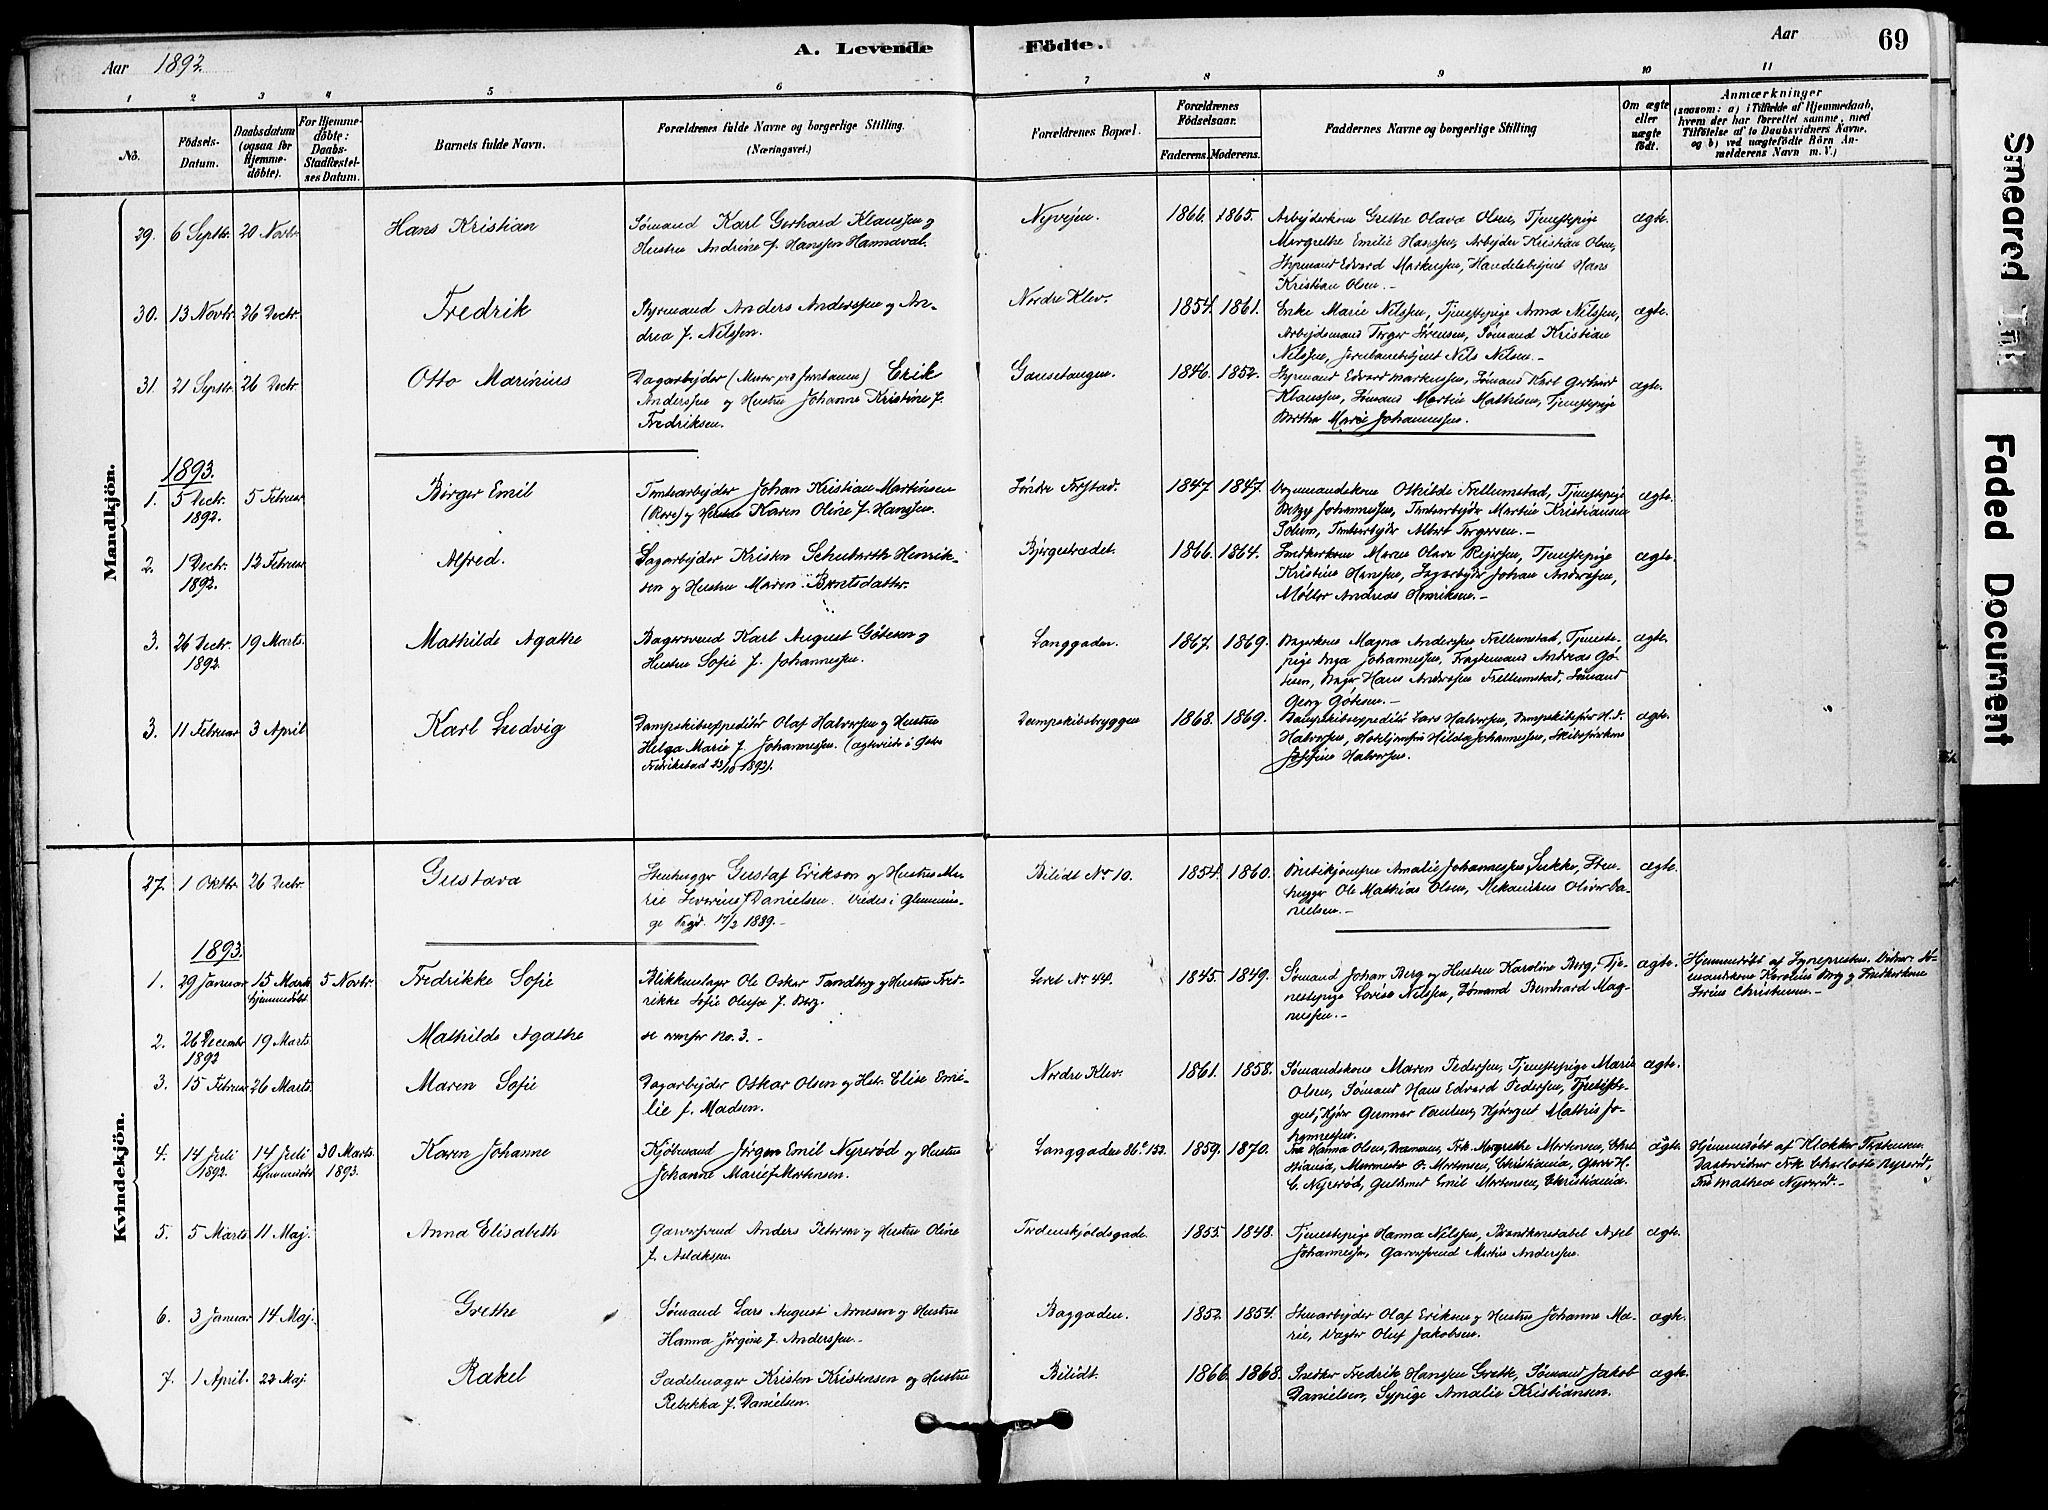 Aar 1892.
A. Levende
Födte.
Aar
69
1
2
3
4
5
6
7
8
9
10
11
No.
Födsels-Datum.
Daabsdatum (ogsaa for Hjemmedöbte).
For Hjemmedöbte: Daabs-Stadfæstelses Datum.
Barnets fulde Navn.
Forældrenes fulde Navne og borgerlige Stilling.
(Næringsvei.)
Forældrenes Bopæl.
Forældrenes Födselsaar.
Faderens. Moderens.
Faddernes Navne og borgerlige Stilling
Om ægte eller uægte födt.
Anmærkninger
(saasom: a) i Tilfælde af Hjemmedaab,
hvem der har forrettet samme, med
Tilföielse af to Daabsvidners Navne,
og b) ved uægtefödte Börn An-
melderens Navn m. V.)
Mandkjön.
29. 6 Septbr. 20 Novbr.
Hans Kristian
Sømand Karl Gerhard Klaussen og
Hustru Andrine f. Hanssen Hannaval.
Nyvejen.
1866. 1865.
Arbejderkone Grethe Olava Olsen, Tjenestepige
Margrethe Emilie Hanssen, Arbejder Kristian Olsen,
Styrmand Edvard Markussen, Handelsbetjent Hans
Kristian Olsen.-
ægte.
30. 13 Novbr. 26 Decbr.
Fredrik
Styrmand Anders Anderssen og An-
drea f. Nilssen.
Nordre Klev.
1854. 1861.
Enke Marie Nilssen, Tjenestepige Anna Nilssen,
Arbejdsmand Torger Sørensen, Sømand Kristian
Nilssen, Nils Nilsen.-
ægte.
31. 21 Septbr. 26 Decbr.
Otto Marinius
Dagarbejder Erik
Anderssen og Hustru Johanne Kristine f.
Fredriksen.
Gansetangen.
1846. 1852.
Styrmand Edvard Markussen, Sømand Karl Gerhard
Klaussen, Sømand Martin Mathisen, Tjenestepige
Berthe Marie Johannessen.
ægte.
1893.
1. 5 Decbr. 1892. 5 Februar
Børger Emil
Tomtearbejder Johan Kristian Martinsen
og Hustru Karen Oline f. Hanssen.
Søndre
1847. 1847.
Othilde Frellumstad, Tjenestepige
Betzy Johannessen, Tomtearbejder Martin Kristiansen
Tomtearbejder Albert Torgersen.-
ægte.
2. 1 Decbr. 1892. 12 Februar
Alfred.
Dagarbejder Kristen Schuberth Henrik-
sen og Hustru Maren Berntsdatter.
Bjergestrædet.
1866. 1864.
Snedkerkone Maren Olava Tjenestepige
Kristine Hanssen, Dagarbejder Johan Anderssen,
Møller Andreas Henriksen.-
ægte.
3. 26 Decbr. 1892. 19 Marts
Mathilde Agathe
Bagersvend Karl August Gøtesen og
Hustru Sofie f. Johannessen.
Langgaden.
1867. 1869.
Bagerkone Magna Anderssen Frellumstad, Tjeneste-
pige Inga Johannessen, Fragtemand Andreas Gø-
tesen, Bager Hans Anderssen Frellumstad, Sømand
Georg Gøtesen.
ægte.
3. 11 Februar 3 April
Karl Ludvig
Dampskibsexpeditør Olaf Halvorsen og Hustru
Helga Marie f. Johannessen. (ægteviet i Østre
Fredrikstad 23/10 1892).
Dampskibsbryggen
1868. 1869.
Dampskibsexpeditør Lars Halvorsen, Dampskibsfører H. J.
Halvorsen, Hilda Johannessen,
Josefine Halvorsen.
ægte.
Kvindekjön.
27. 1 Oktbr. 26 Decbr.
Gustava
Stenhugger Gustaf Erikson og Hustru Ma-
rie Severine f. Danielsen. Viedes i Glemmin-
ge 17/2 1889.-
Bilidt No. 10.
1854. 1860.
Butikjomfru Amalie Johannessen Lukke, Sten-
hugger Ole Mathias Olsen, Mekanikus Oliver Da-
nielsen.-
ægte.
1893.
1. 29 Januar 15 Marts Hjemmedöbt 5 Novbr.
Fredrikke Sofie
Blikkenslager Ole Oskar Tandberg og Hustru Fred-
rikke Sofie f. Berg.
Leret No. 44.
1845. 1849.
Sømand Johan Berg og Hustru Karoline Berg, Tje-
nestepige Lovise Nilssen, Sømand Bernhard Mag-
nussen.-
ægte.
Hjemmedöbt af Sogneprester. Vidner: Sø-
mandskone Karoline Berg og Snedkerkone
Christensen.-
2. 26 Decembr 1892 19 Marts
Mathilde Agathe
se ovenfor No. 3.-
3. 15 Februar 26 Marts.
Maren Sofie
Dagarbejder Oskar Olsen og Hstr. Elise Emi-
lie f. Madsen.
Nordre Klev.
1861. 1858.
Sømandskone Maren Pedersen, Tjenestepige Marie
Olsen, Sømand Hans Edvard Pedersen,
Gunnar Paulsen, Mathis Jo-
hannessen.
ægte.
4. 14 Juli 1892. 14 Juli Hjemmedöbt 30 Marts 1893.
Karen Johanne
Kjøbmand Jørgen Emil Nyrerød og Hustru
Johanne Marie f. Mortensen.
Langgaden 86 & 152.
1859. 1870.
Fru Hanna Olsen, Frk. Margrethe Mortensen, Chri-
stiania, Murmester O. Mortensen, Christiania, Garver H.
C. Nyrerød, Guldsmed Emil Mortensen, Christiania.
ægte.
Hjemmedöbt af Klokker Torstensen.
Daabsvidner Frk. Charlotte Nyrerød,
Fru Mathea Nyrerød.-
5. 5 Marts 11 Maj.
Anna Elisabeth
Garversvend Anders Peterson og Hustru Oline
f. Aslaksen.
Tordenskjoldsgade.
1855. 1848.
Tjenestepige Hanna Nilssen, Brandkonstabel Axel
Johannessen, Garversvend Martin Anderssen.
ægte.
6. 3 Januar 14 Maj.
Grethe
Sømand Lars August Arnesen og Hustru
Hanna Jørgine f. Anderssen.-
Baggaden.
1852. 1854.
Stenarbejder Olaf Eriksen og Hustru Johanne Ma-
rie, Vagter Oluf Jakobsen.
ægte.
7. 1 April. 22 Maj
Rakel
Sadelmager Kristen Kristensen og Hustru
Rebekka f. Danielsen.
Bilidt.
1866. 1868.
Snedker Fredrik Hanssen Grette, Sømand Jakob
Danielsen, Sypige Amalie Kristiansen.
ægte.
Smeared Ink
Faded Document